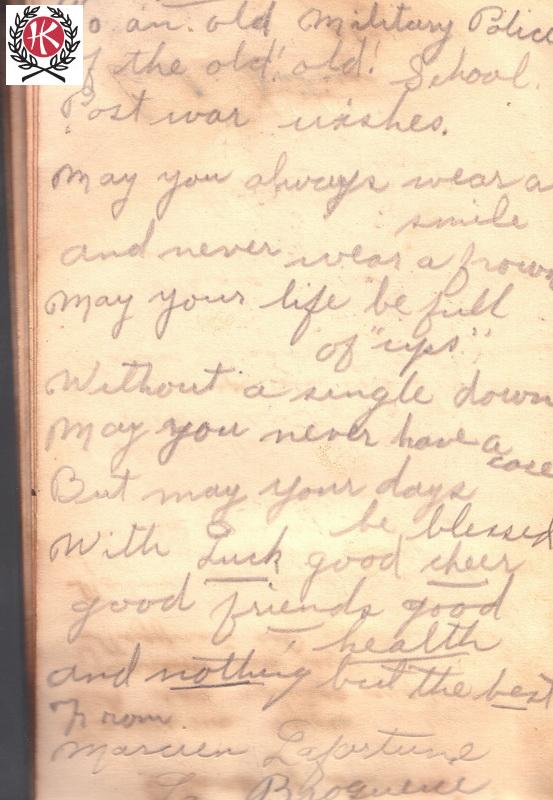 HK
o an old Military Police
f the old! old! School.
Post war wishes.
May you always wear a
smile
and never wear a frown
May your life be full
of "ups"
Without a single down
May you never have a
care
But may your days
be blessed
With Luck good cheer
good friends good
health
and nothing but the best
From
Marcien Lafortune
La Broquerie